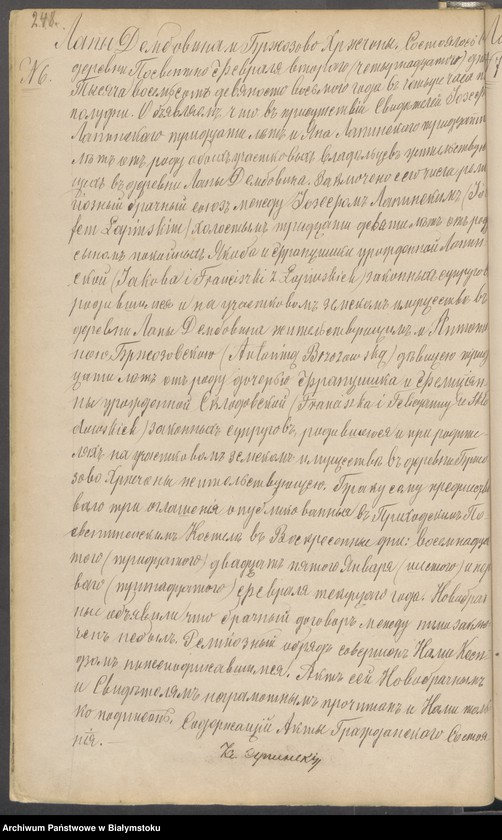 248.
№6.
Лапы Дембовизна и Бржозово Хржчоны. Состоялось въ
деревнѣ Посвентно Февраля втораго /четырнадцатаго/ дня
тысяча восемьсотъ девяносто восьмого года въ четыре часа по
полудни. Объявляемъ, что въ присутствіи свидѣтелей Іосефа
Лапинского тридцати лѣтъ и Яна Лапинского тридцати
лѣтъ отъ роду обоихъ участковыхъ владѣльцевъ жительствую
щихъ въ деревнѣ Лапы Дембовизна. Заключено сего числа рели
гіозный брачный союзъ между Іозефомъ Лапинскимъ (Jó
fem Łapińskim) холостымъ тридцати девяти лѣтъ отъ роду
сыномъ покойныхъ Якоба и Францишки урожденной Лапин
ской (Jakóba i Franciszki z Łapińskich) законныхъ супруговъ
родившимся и на участковомъ земскомъ имуществѣ въ
деревнѣ Лапы Дембовизна жительствующимъ и Антони
ною Бржозовскою (Antoniną Brzozowską) дѣвицею трид
цати лѣтъ отъ роду дочерью Францишка и Фелиціян
ны урожденной Склодовской (Franciszka i Felicyanny z Skło
dowskich) законныхъ супруговъ, родившеюся и при родите
ляхъ на участковомъ земскомъ имуществѣ въ деревнѣ Бржо
зово Хржчоны жительствующею. Браку сему предшество
вало три оглашенія опубликованныя въ Приходскомъ По
свентскомъ Костелѣ въ Воскресные дни: восемнадца
того (тридцатого) двадцать пятого Января (шестого) и пер
ваго (тринадцатого) Февраля текущаго года. Новобрач
ные объявили что брачный договоръ между ними заклю
ченъ небылъ. Религіозный обрядъ совершенъ Нами Ксен
дзомъ нижеподписавшимся. Актъ сей Новобрачнымъ
и Свидѣтелямъ неграмотнымъ прочитанъ и Нами толь
ко подписанъ. Содержащій Акты Гражданского Состоя
нія. —
Кс.
Archiwum Państwowe w Białymstoku